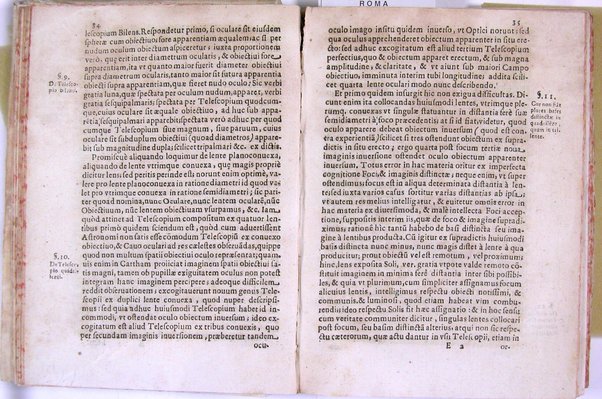 ROMA
34
lescopium Bilens. Respondetur primo, si oculare sit eiusdem
sphæræ cum obiectiuo fore apparentiam æqualem ac si per
nudum oculum obiectum aspiceretur: iuxta proportionem
verò, quæ erit inter diametrum ocularis, & obiectiui fore
apparentiam, ita vt quanto maior fuerit diameter obiectiui
supra diametrum ocularis, tanto maior sit futura apparentia
obiecti supra apparentiam, quæ fieret nudo oculo: Sic verbi
gratia luna, quæ spectata per oculum nudum, apparet, verbi
gratia sesquipalmaris: spectata per Telescopium quodcum-
que, cuius oculare sit æquale obiectiuo, ad huc sub appa-
rentia sesquipalmari apparebit: spectata verò adhuc per quod
cumque Telescopium siue magnum, siue paruum, cuius
oculare sit subduplum obiectiui (quoad diametros) appare-
bit sub magnitudine dupla; scilicet tripalmari &c. ex dictis.
Promiscuè aliquando loquimur de lente planoconuexa,
aliquando de lente vtrimque conuexa, quæ magis propriè
dicitur lens; sed peritis perinde est; norunt enim optimè, va-
lere pro lente planoconuexa in ratione diametri id quod va-
let pro vtrimque conuexa in ratione semidiametri; sic pari-
ter quoad nomina, nunc Oculare, nunc lentem ocularē, nūc
Obiectiuum, nūc lentem obiectiuam vsurpamus, &c. Iam
quòd attinet ad Telescopium compositum ex quatuor len-
tibus primò quidem sciendum est, quod cum aduertissent
Astronomi non satis esse commodum Telescopiū ex conuexo
obiectiuo, & Cauo oculari ad res cælestes obseruādas, quippe
quod non multum spatii obiectiui oculo repræsentat; quam-
uis enim in Cartham proliciat imaginem spatii obiectiui sa-
tis magni, tamen ob pupillæ exiguitatem oculus non potest
integram hanc imaginem percipere; adeoque difficiles
reddit obseruationes; excogitauerunt nouum genus Tele-
scopii ex duplici lente conuexa, quod nuper descripsi-
mus: sed quia adhuc huiusmodi Telescopium habet id in-
commodi, vt ostendat oculo obiectum inuersum; ideo ex-
cogitatum est aliud Telescopium ex tribus conuexis, quo
per secundam imaginis inuersionem, præberetur tandem
ocu-
§. 9.
§. 10.
35
oculo imago insitu quidem inuerso, vt Optici norunt: sed
qua oculus apprehenderet obiectum apparenter in situ ere-
cto: sed adhuc excogitatum est aliud tertium Telescopium
perfectius, quo & obiectum appareat erectum, & sub magna
amplitudine, & claritate, & vt aiunt sub maiori Campo
obiectiuo, imminuta interim tubi longitudine: addita scili-
cet quarta lente oculari modo nunc describendo.
Et primò quidem insurgit hic non exigua difficultas. Di-
cunt enim ita collocandas huiusmodi lentes, vtrimque ple-
rumq. conuexas vt singulæ statuantur in distantia ferè suæ
semidiametri à foco præcedentis: at si id statuatur, quod
oculo apparere debeat obiectum inuersum (quod est con-
tra experientiā) scilicet si tres ostendunt obiectum ex supra-
dictis in situ erecto, ergo quarta post focum tertiæ noua
imaginis inuersione ostendet oculo obiectum apparenter
inuersum, Totus error in hac materia oritur ex imperfecta
cognitione Foci, & imaginis distinctæ; neque enim, vt super
ostendimus focus est in aliqua determinata distantia à len-
te; sed iuxta varios casus sortitur varias distantias ab ipsa,
vt autem res melius intelligatur, & euitetur omnis error in
hac materia ex diuersimoda, & malè intellecta Foci accep-
tione, suppositis interim iis, quæ de foco & imagine supradi-
ximus: ratio hic tantū habebo de basi distincta seu ima-
gine à lentibus producta. Cū igitur ex supradictis huiusmodi
basis distincta nunc minus, nunc magis distet à lente à qua
producitur; promptu obiecto vel remotum, vel proximum:
hinc .lens exposita Soli, ver. gratia vtpote valde remoto cō-
stituit imaginem in minima ferè distantia inter sibi possibi-
les, & quia plerumque, cum simpliciter assignamus focum
alicuius lentis, intelligimus, respectu obiecti notissimi, &
communis, & luminosi, quod etiam habeat vim combu-
rendi; ideo respectu Solis sit hæc assignatio: & in hoc sensu
cum veritate communiter dicitur, singulas lentes collocari
post focum, seu basim distinctā alterius; at qui non sic respe-
ctu cæterorum, quæ actu dantur in vsu Telescopii, etiam in
E 2
oc-
§. 11.